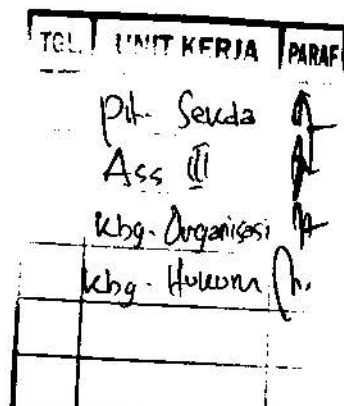 TGL. UNIT KERJA PARAF
Plt. Sekda
Ass III
Kbg. Organisasi
Kbg. Hukum